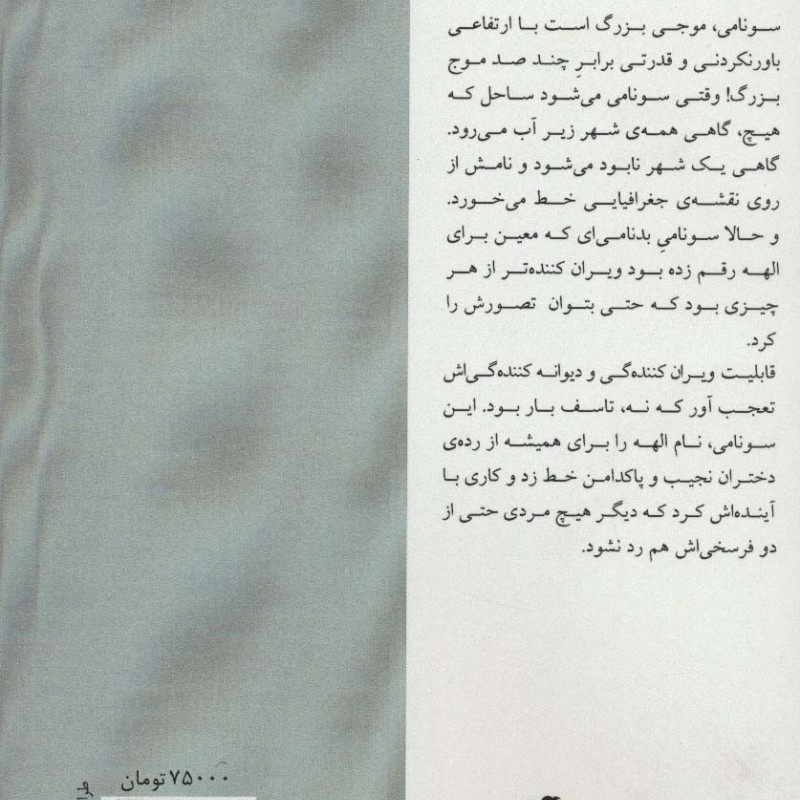 سونامی، موجی بزرگ است با ارتفاعی
باورنکردنی و قدرتی برابرِ چند صد موج
بزرگ! وقتی سونامی می‌شود ساحل که
هیچ، گاهی همه‌ی شهر زیر آب می‌رود.
گاهی یک شهر نابود می‌شود و نامش از
روی نقشه‌ی جغرافیایی خط می‌خورد.
و حالا سونامیِ بدنامی‌ای که معین برای
الهه رقم زده بود ویران کننده‌تر از هر
چیزی بود که حتی بتوان تصورش را
کرد.
قابلیت ویران کننده‌گی و دیوانه کننده‌گی‌اش
تعجب آور که نه، تاسف بار بود. این
سونامی، نام الهه را برای همیشه از رده‌ی
دختران نجیب و پاکدامن خط زد و کاری با
آینده‌اش کرد که دیگر هیچ مردی حتی از
دو فرسخی‌اش هم رد نشود.
۷۵۰۰۰ تومان